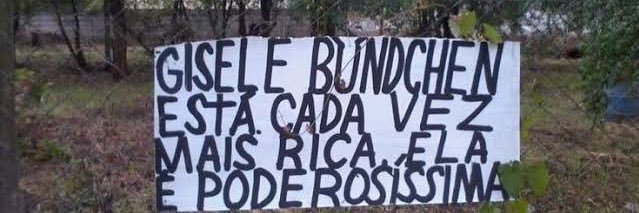 GISELE BÜNDCHEN
ESTÁ. CADA VEZ
MAIS RICA. ELA
É PODEROSÍSSIMA